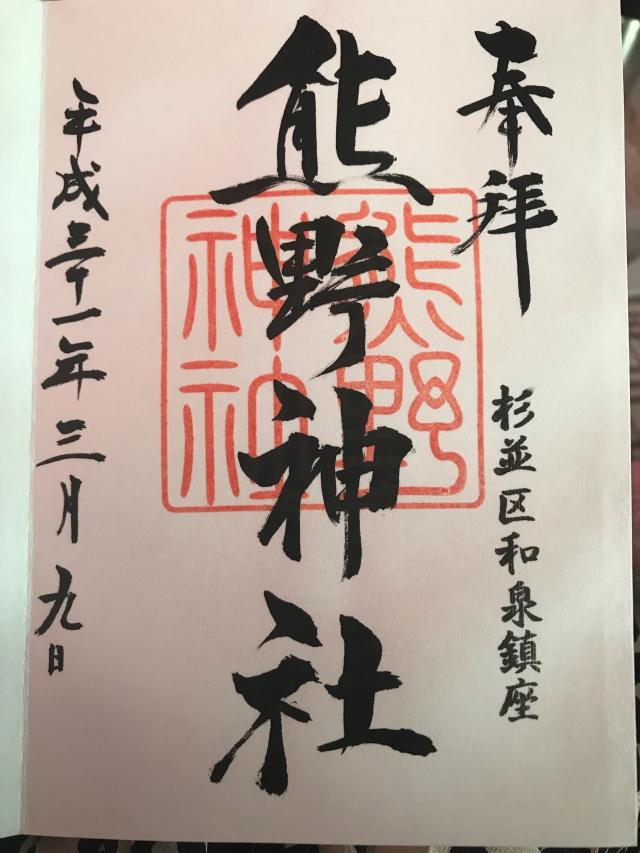 奉拝
杉並区和泉鎮座
熊野神社
熊野神社
平成三十一年三月九日